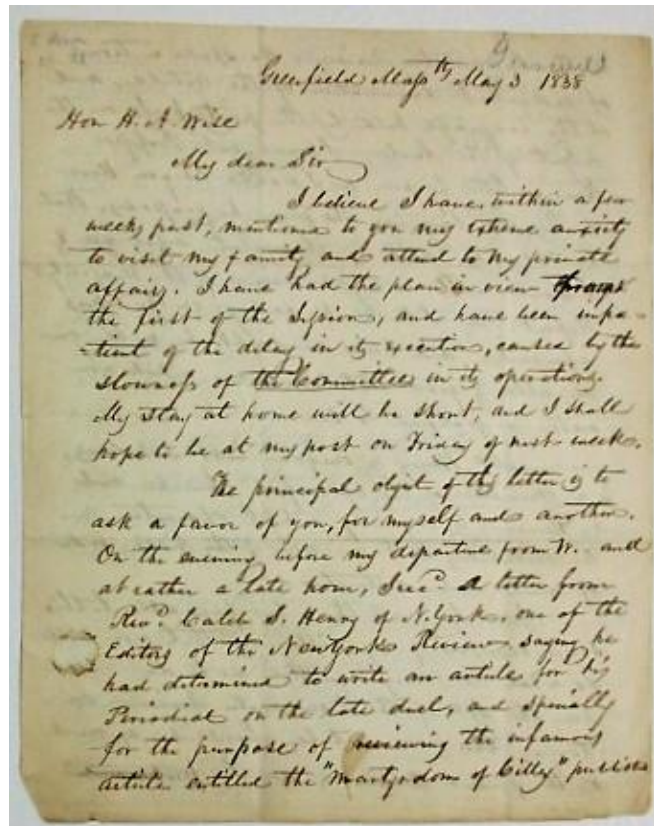 Greenfield Massts May 3 1838
Hon H. A. Wise
My dear Sir
I believe I have, within a few
weeks past, mentioned to you my extreme anxiety
to visit my family and attend to my private
affairs. I have had the plan in view
the first of the Session, and have been impa-
-tient of the delay in its execution, caused by the
slowness of the Committee in its operations.
My stay at home will be short, and I shall
hope to be at my post on Friday of next week.
The principal object of this letter is to
ask a favor of you, for myself and another.
On the evening before my departure from W. and
at rather a late hour, I recd. a letter from
Revd. Caleb S. Henry of N. York, one of the
Editors of the New York Review saying he
had determined to write an article for his
Periodical on the late duel, and specially
for the purpose of reviewing the infamous
article entitled the "Martyrdom of Cilley" published